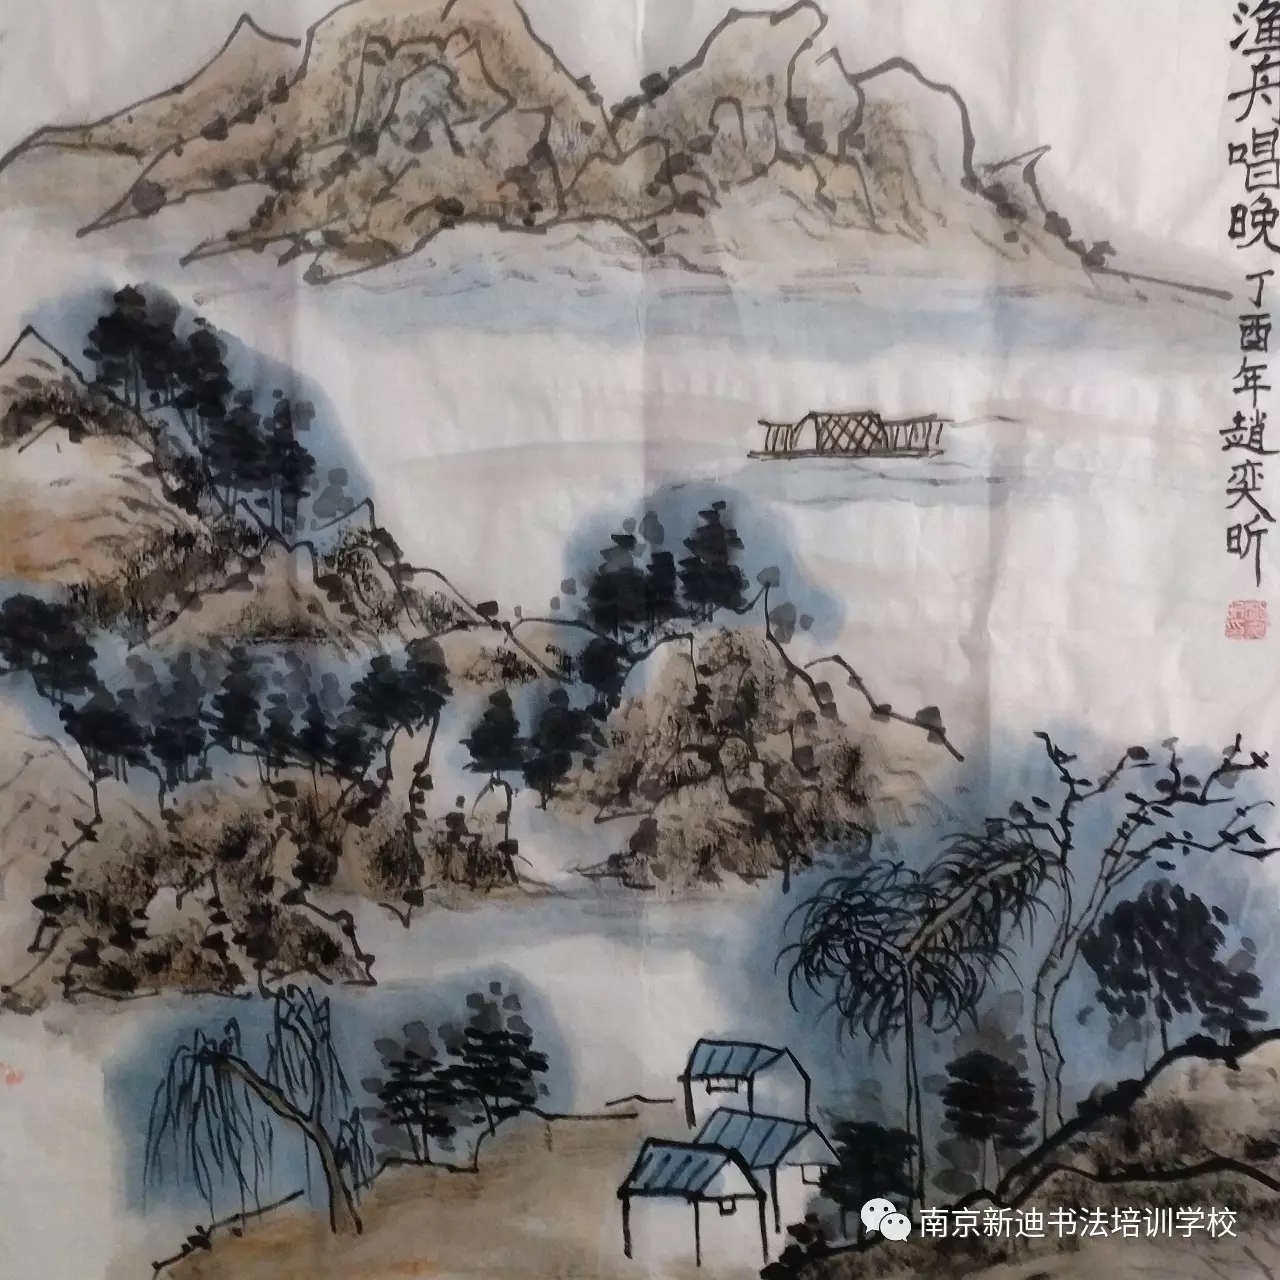 渔舟唱晚 丁酉年 趙奕昕
南京新迪书法培训学校